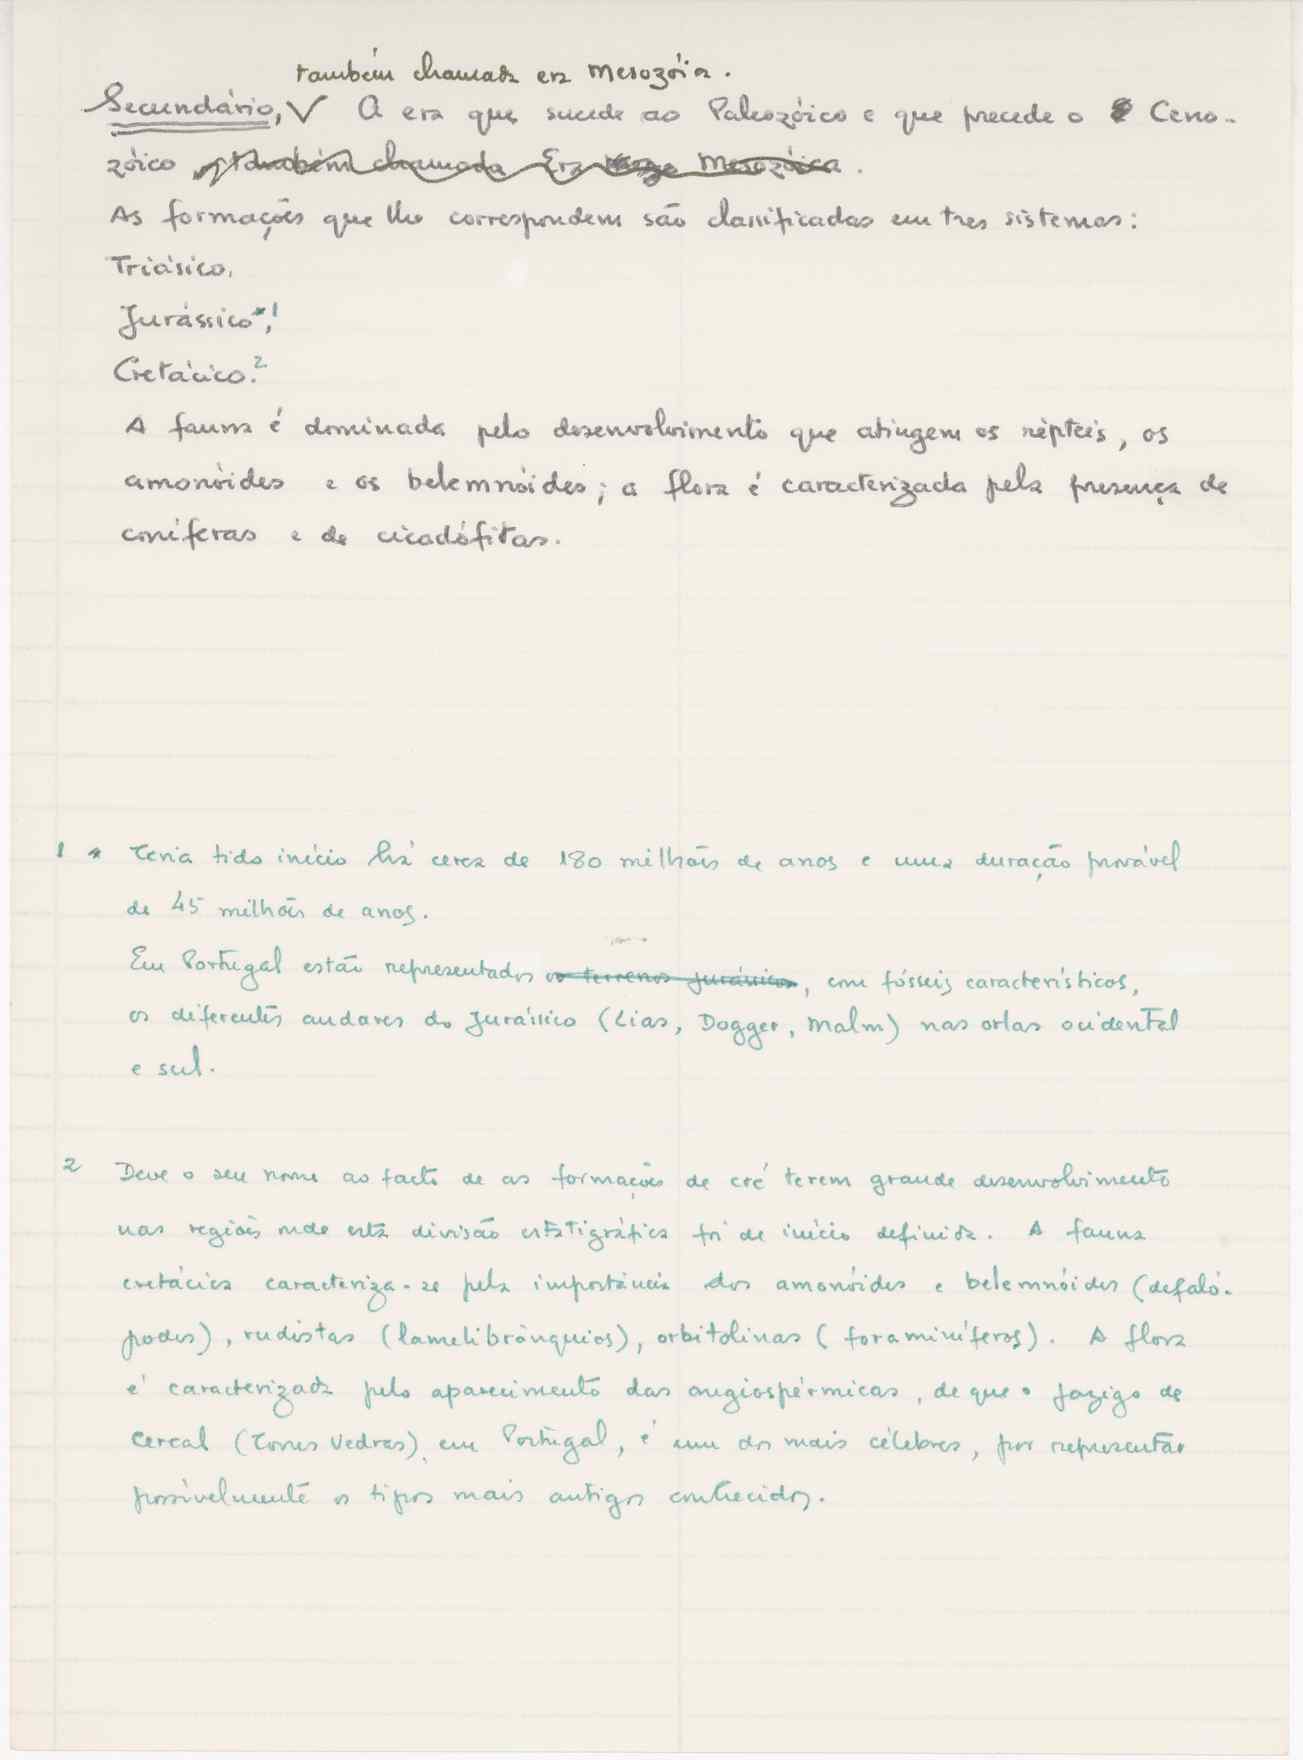 também chamada era Mesozóica.
Secundário, V A era que sucede ao Paleozóico e que precede o Ceno-
zóico também chamada Era Mesozóica.
As formações que lhe correspondem são classificadas em tres sistemas:
Triásico,
Jurássico*,1
Cretácico.2
A fauna é dominada pelo desenvolvimento que atingem os répteis, os
amonóides e os belemnóides; a flora é caracterizada pela presença de
coníferas e de cicadófitas.
1 * Teria tido início há cerca de 180 milhões de anos e uma duração provável
de 45 milhões de anos.
Em Portugal estão representados os terrenos jurássicos, com fósseis característicos,
os diferentes andares do Jurássico (Lias, Dogger, Malm) nas orlas ocidental
e sul.
2 Deve o seu nome ao facto de as formações de cré terem grande desenvolvimento
nas regiões onde esta divisão estratigráfica foi de início definida. A fauna
cretácica caracteriza-se pela importância dos amonóides e belemnóides (cefaló-
podes), rudistas (lamelibrânquios), orbitolinas (foraminíferos). A flora
é caracterizada pelo aparecimento das angiospérmicas, de que o jazigo de
Cercal (Torres Vedras), em Portugal, é um dos mais célebres, por representar
possivelmente os tipos mais antigos conhecidos.